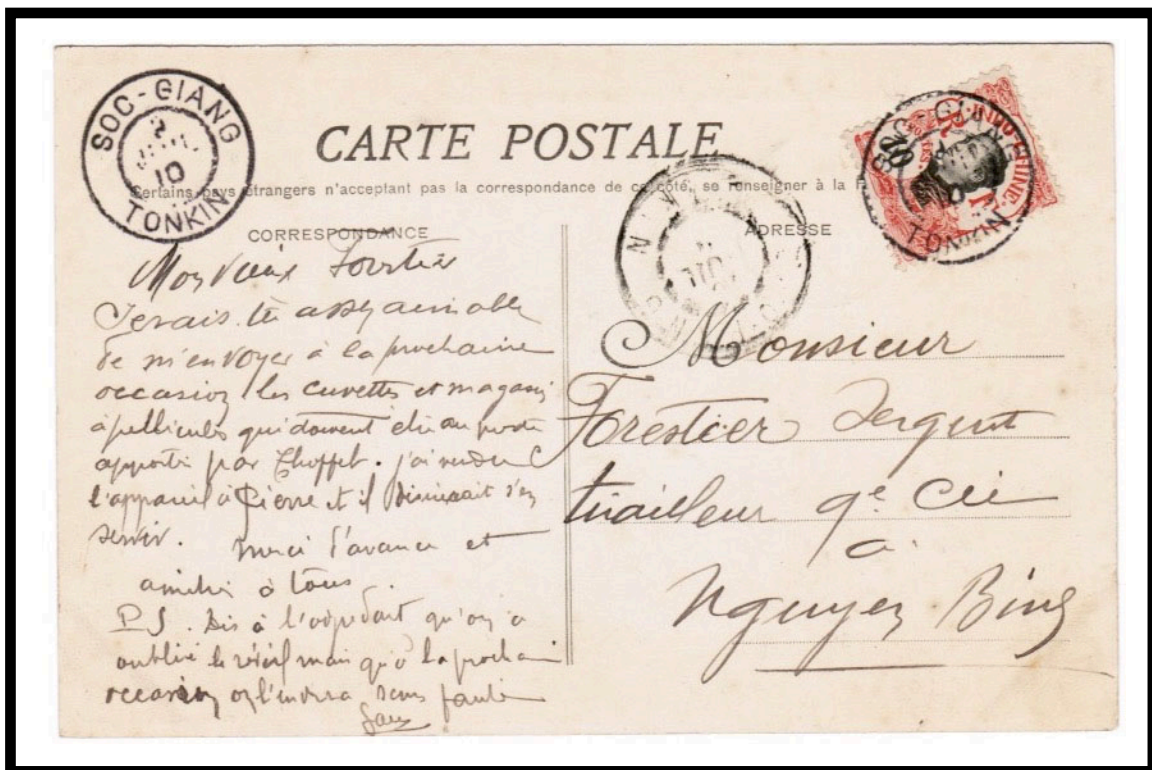 SOC-GIANG
2
10
TONKIN
CARTE POSTALE
Certains pays étrangers n'acceptent pas la correspondance de ce côté, se renseigner à la
CORRESPONDANCE
ADRESSE
INDO-CHINE
10
SOC-GIANG
TONKIN
Mon Vieux Forestier
Serais tu assez aimable
de m'envoyer à la prochaine
occasion les cuvettes et magasin
à pellicules qui doivent être au poste
apporté par Choffet. j'ai vendu
l'appareil à Pierre et il désirerait s'en
servir.
Merci d'avance et
amitiés à tous.
P S. Dis à l'adjudant qu'on a
oublié le réveil mais qu'à la prochaine
occasion on l'enverra sans faute
Monsieur
Forestier Sergent
tirailleur 9e Cie
à
Nguyen Binh